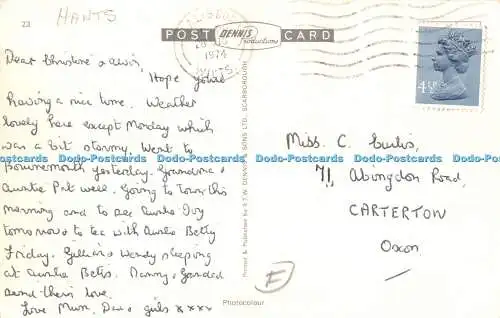 22
HANTS
POST DENNIS Productions CARD
1974
HANTS.
4½P
Dear Christine & Alvin,
Hope you're
having a nice time. Weather
lovely here except Monday which
was a bit stormy. Went to
Bournemouth yesterday. Grandma &
Auntie Pat well. Going to Town this
morning and to see Auntie Ivy
tomorrow & to tea with Auntie Betty
Friday. Gillian & Wendy sleeping
at Auntie Bettys. Nanny & Grandad
send their love.
Love Mum, Dad & girls xxxx
Miss. C. Curtis,
71, Abingdon Road,
CARTERTON
Oxon
Printed & Published by E.T.W. DENNIS & SONS LTD., SCARBOROUGH
F
Photocolour
Dodo-Postcards Dodo-Postcards Dodo-Postcards Dodo-Postcards Dodo-Postcards